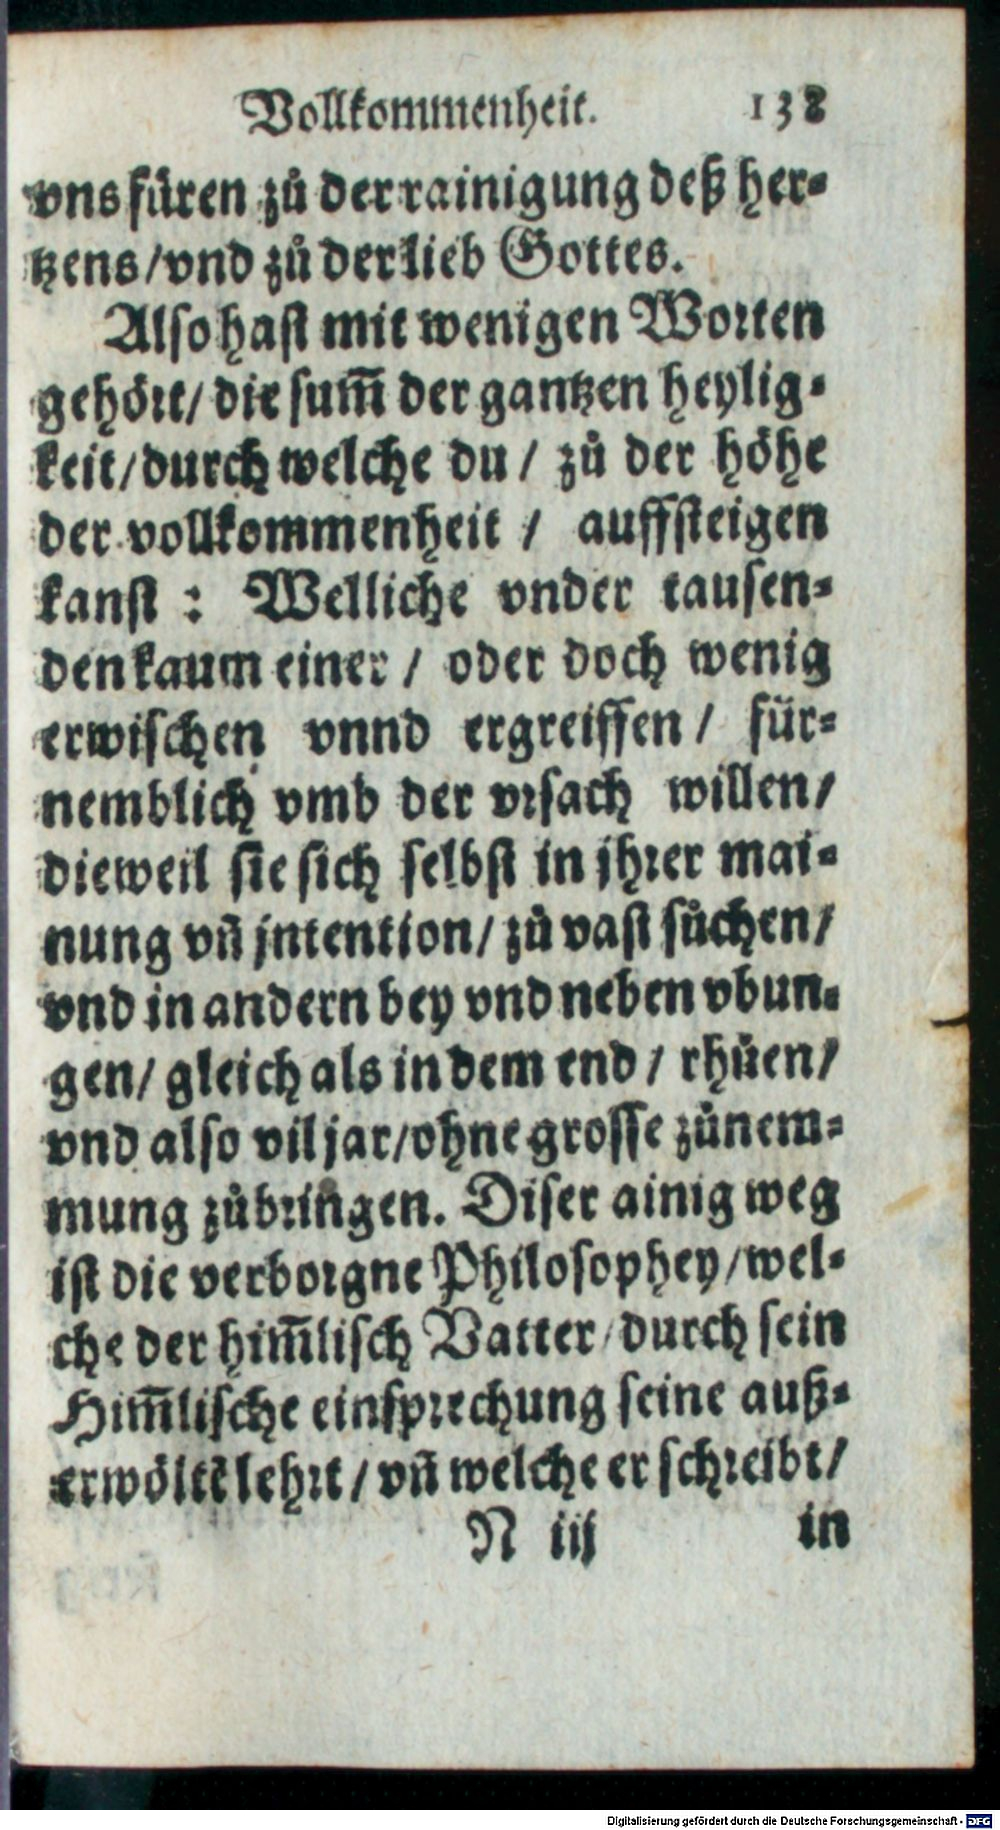 Vollkommenheit. 138
vns füren zů der rainigung deß her-
tzens/vnd zů der lieb Gottes.
Also hast mit wenigen Worten
gehört/ die sum̄ der gantzen heylig-
keit/durch welche du/ zů der höhe
der vollkommenheit / auffsteigen
kanst : Welliche vnder tausen-
den kaum einer / oder doch wenig
erwischen vnnd ergreiffen/ für-
nemblich vmb der vrsach willen/
dieweil sie sich selbst in jhrer mai-
nung vn̄ jntention/ zů vast sůchen/
vnd in andern bey vnd neben vbun-
gen/ gleich als in dem end / rhůen/
vnd also vil jar/ohne grosse zůnem-
mung zůbringen. Diser ainig weg
ist die verborgne Philosophey/wel-
che der him̄lisch Vatter/durch sein
Him̄lische einsprechung seine auß-
erwöltē lehrt/ vn̄ welche er schreibt/
N iij in
Digitalisierung gefördert durch die Deutsche Forschungsgemeinschaft - DFG